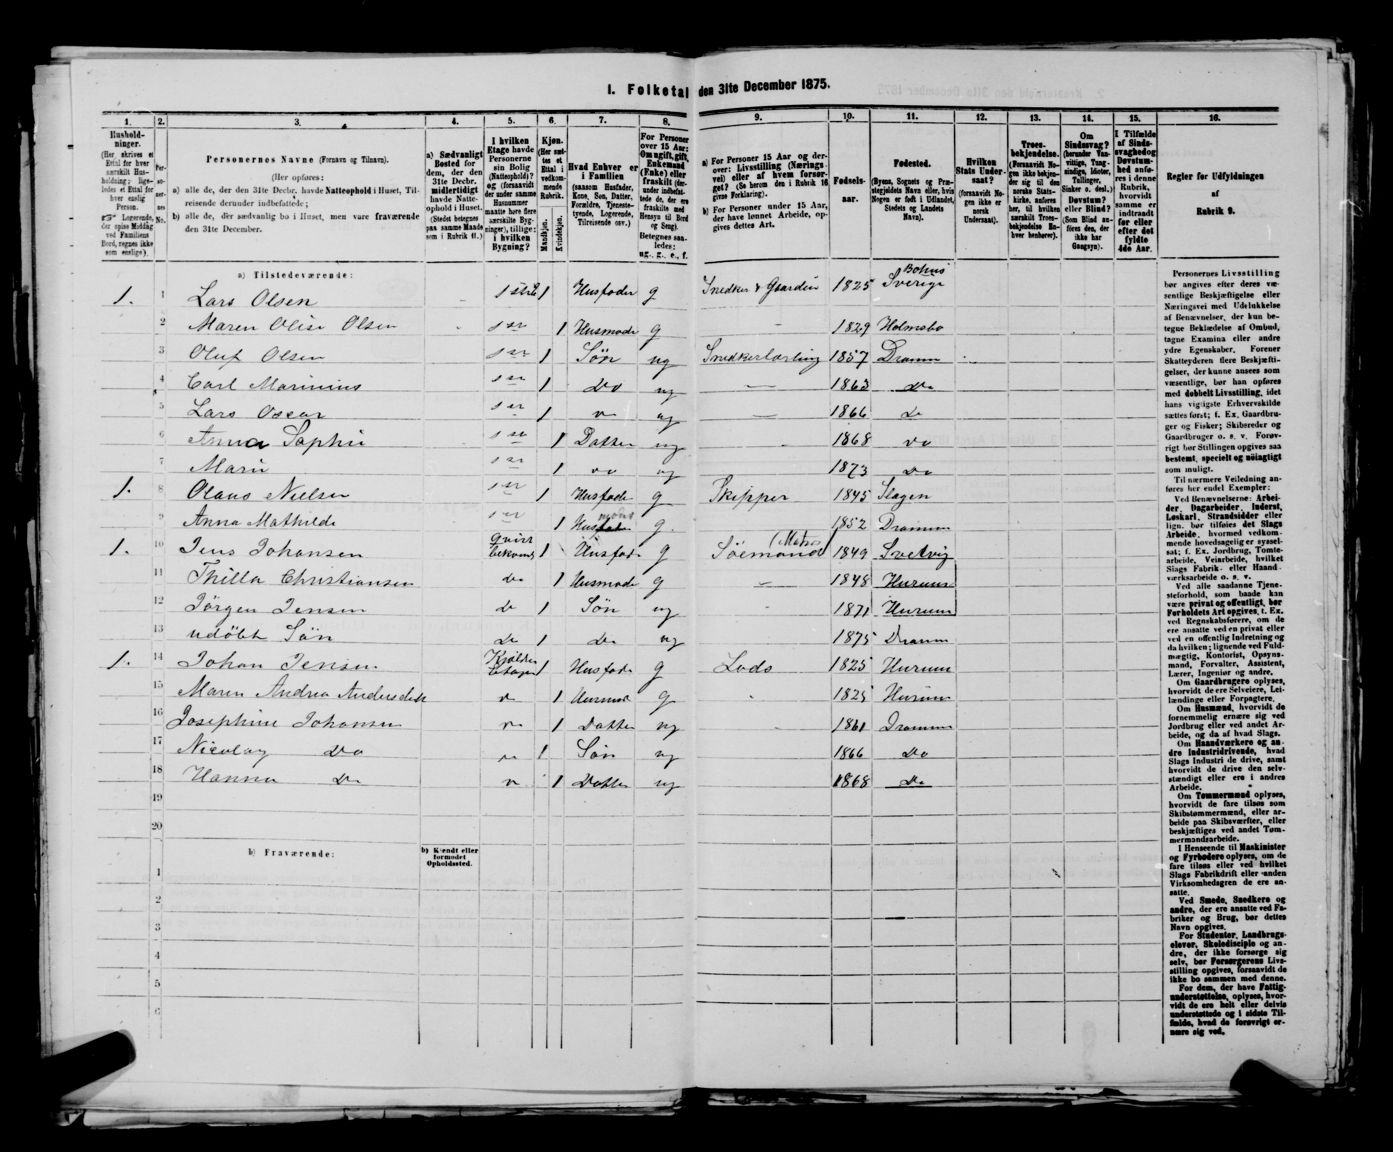 I. Folketal den 31te December 1875.
1. 2. 3. 4. 5. 6. 7. 8. 9. 10. 11. 12. 13. 14. 15. 16.
Hushold-
ninger.
(Her skrives et
Ettal for hver
særskilt Hus-
holdning; lige-
ledes et Ettal for
hver enslig
Person.
☞ Logerende,
der spise Middag
ved Familiens
Bord, regnes ikke
som enslige).
Per-
so-
ner-
nes
No.
Personernes Navne (Fornavn og Tilnavn).
(Her opføres:
a) alle de, der den 31te Decbr. havde Natteophold i Huset, Til-
reisende derunder indbefattede;
b) alle de, der sædvanlig bo i Huset, men vare fraværende
den 31te December.
a) Sædvanligt
Bosted for
dem, der den
31te Decbr.
midlertidigt
havde Natte-
ophold i Huset.
(Stedet betegnes
paa samme Maade
som i Rubrik 11.)
I hvilken
Etage havde
Personerne
sin Bolig
(Natteophold)?
og (forsaavidt
der under samme
Husnummer
maatte høre flere
særskilte Byg-
ninger), tillige:
i hvilken
Bygning?
Kjøn.
(Her sæt-
tes et
Ettal i
vedkom-
mende
Rubrik.
Mandkjøn.
Kvindekjøn.
Hvad Enhver er
i Familien
(saasom Husfader,
Kone, Søn, Datter,
Forældre, Tjeneste-
tyende, Logerende,
Tilreisende osv.)
For Personer
over 15 Aar:
Om ugift, gift,
Enkemand
(Enke) eller
fraskilt (der-
under indbefat-
tede de, der ere
fraskilte med
Hensyn til Bord
og Seng).
Betegnes saa-
ledes:
ug., g., e., f.
a) For Personer 15 Aar og der-
over: Livsstilling (Nærings-
vei) eller af hvem forsør-
get? (Se herom den i Rubrik 16
givne Forklaring).
b) For Personer under 15 Aar,
der have lønnet Arbeide, op-
gives dettes Art.
Fødsels-
aar.
Fødested.
(Byens, Sognets og Præ-
stegjeldets Navn eller, hvis
Nogen er født i Udlandet,
Stedets og Landets
Navn).
Hvilken
Stats Under-
saat?
(forsaavidt No-
gen ikke er
norsk
Undersaat).
Troes-
bekjendelse.
(Forsaavidt No-
gen ikke bekjen-
der sig til den
norske Stats-
kirke, anføres
her, til hvilken
særskilt Troes-
bekjendelse En-
hver henhører).
Om
Sindssvag?
(herunder Van-
vittige, Tung-
sindige, Idioter,
Tullinger,
Sinker o. desl.)
Døvstum?
eller Blind?
(Som Blind an-
føres den, der
ikke har
Gangsyn).
I Tilfælde
af Sinds-
svaghedog
Døvstum-
hed anfø-
res i denne
Rubrik,
hvorvidt
samme er
indtraadt
før eller
efter det
fyldte
4de Aar.
Regler for Udfyldningen
af
Rubrik 9.
a) Tilstedeværende:
1. 1 Lars Olsen 1 1 Husfader g Snedker & Gaardeier 1825 Bohus Sverige
2 Maren Olise Olsen 1 Husmode g 1829 Holmsbo
3 Oluf Olsen 1 Søn ug Snedkerlærling 1857 Dramm
4 Carl Marinius 1 Do ug 1863 Do
5 Lars Oscar 1 ug 1866 Do
6 Anna Sophie 1 Datter ug 1868 Do
7 Marie 1 Do ug 1873 Do
1. 8 Olaus Nielsen 1 Husfade g Skipper 1845 Slagen
9 Anna Mathilde 1 Husmode g. 1852 Dramm
1. 10 Jens Johansen Qvist 1 Husfad g Sømand (Matros) 1849 Svelvig
11 Thilla Christiansen do 1 Husmode g 1848 Hurum
12 Jørgen Jensen do 1 Søn ug 1871 Hurum
13 udøbt Søn Do 1 Do ug 1875 Dramm
1. 14 Johan Jensen Kjelder Etagen 1 Husfade g Lods 1825 Hurum
15 Maren Andrea Andersdatt 1 Husmod g 1825 Hurum
16 Josephine Johansen 1 Datter ug 1861 Dramm
17 Nicolay Do 1 Søn ug 1866 Do
18 Hanna Do 1 Datter ug 1868 Do
19
20
b) Fraværende:
b) Kjendt eller
formodet
Opholdssted.
1
2
3
4
5
6
Personernes Livsstilling
bør angives efter deres væ-
sentlige Beskjæftigelse eller
Næringsvei med Udelukkelse
af Benævnelser, der kun be-
tegne Beklædelse af Ombud,
tagne Examina eller andre
ydre Egenskaber. Forener
Skatteyderen flere Beskjæfti-
gelser, der kunne ansees som
væsentlige, bør han opføres
med dobbelt Livsstilling, idet
hans vigtigste Erhvervskilde
sættes først; f. Ex. Gaardbru-
ger og Fisker; Skibsreder og
Gaardbruger o. s. v. Forøv-
rigt bør Stillingen opgives saa
bestemt, specielt og nøiagtigt
som muligt.
Til nærmere Veiledning an-
føres her endel Exempler:
Ved Benævnelserne: Arbei-
der, Dagarbeider, Inderst,
Løskarl, Strandsidder eller
lign. bør tilføies det Slags
Arbeide, hvormed vedkom-
mende hovedsagelig er syssel-
sat; f. Ex. Jordbrug, Tomte-
arbeide, Veiarbeide, hvilket
Slags Fabrik- eller Haand-
værksarbeide o. s. v.
Ved alle saadanne Tjene-
steforhold, som baade kan
være privat og offentligt, bør
Forholdets Art opgives, f. Ex.
ved Regnskabsførere, om de
ere ansatte ved en privat eller
ved en offentlig Indretning og
da hvilken; lignende ved Fuld-
mægtig, Kontorist, Opsyns-
mand, Forvalter, Assistent,
Lærer, Ingeniør og andre.
Om Gaardbrugere oplyses,
hvorvidt de ere Selveiere, Lei-
lændinge eller Forpagtere.
Om Husmænd, hvorvidt de
fornemmelig ernære sig ved
Jordbrug eller ved andet Ar-
beide, og da af hvad Slags.
Om Haandværkere og an-
dre Industridrivende, hvad
Slags Industri de drive, samt
hvorvidt de drive den selv-
stændigt eller ere i andres
Arbeide.
Om Tømmermænd oplyses,
hvorvidt de fare tilsøs som
Skibstømmermænd, eller ar-
beide paa Skibsværfter, eller
beskjæftiges ved andet Tøm-
mermandsarbeide.
I Henseende til Maskinister
og Fyrbødere oplyses, om de
fare tilsøs eller ved hvilket
Slags Fabrikdrift eller anden
Virksomhedsgren de ere an-
satte.
Ved Smede, Snedkere og
andre, der ere ansatte ved Fa-
briker og Brug, bør dettes
Navn opgives.
For Studenter, Landbrugs-
elever, Skoledisciple og an-
dre, der ikke forsørge sig
selv, bør Forsørgerens Livs-
stilling opgives, forsaavidt de
ikke bo sammen med denne.
For dem, der have Fattig-
understøttelse, oplyses, hvor-
vidt de ere helt eller delvis
understøttede og i sidste Til-
fælde, hvad de forøvrigt er-
nære sig ved.